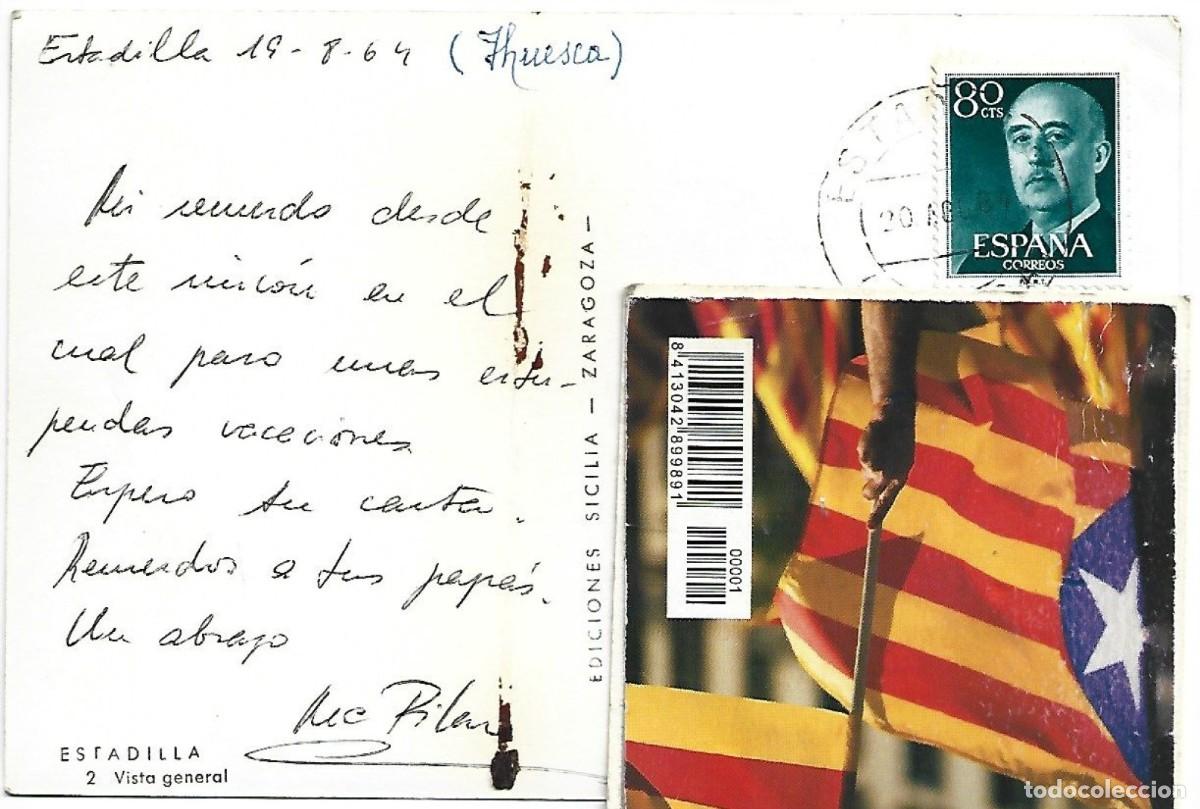 Estadilla 19-8-64 (Huesca)
Mi recuerdo desde
este rincón en el
cual paso unas estu-
pendas vacaciones
Espero tu carta.
Recuerdos a tus papás.
Un abrazo
Mª Pilar
ESTADILLA
2 Vista general
EDICIONES SICILIA — ZARAGOZA —
80
CTS
ESPAÑA
CORREOS
ESTA
20 AGO 64
8 413042 899891
00001
todocoleccion